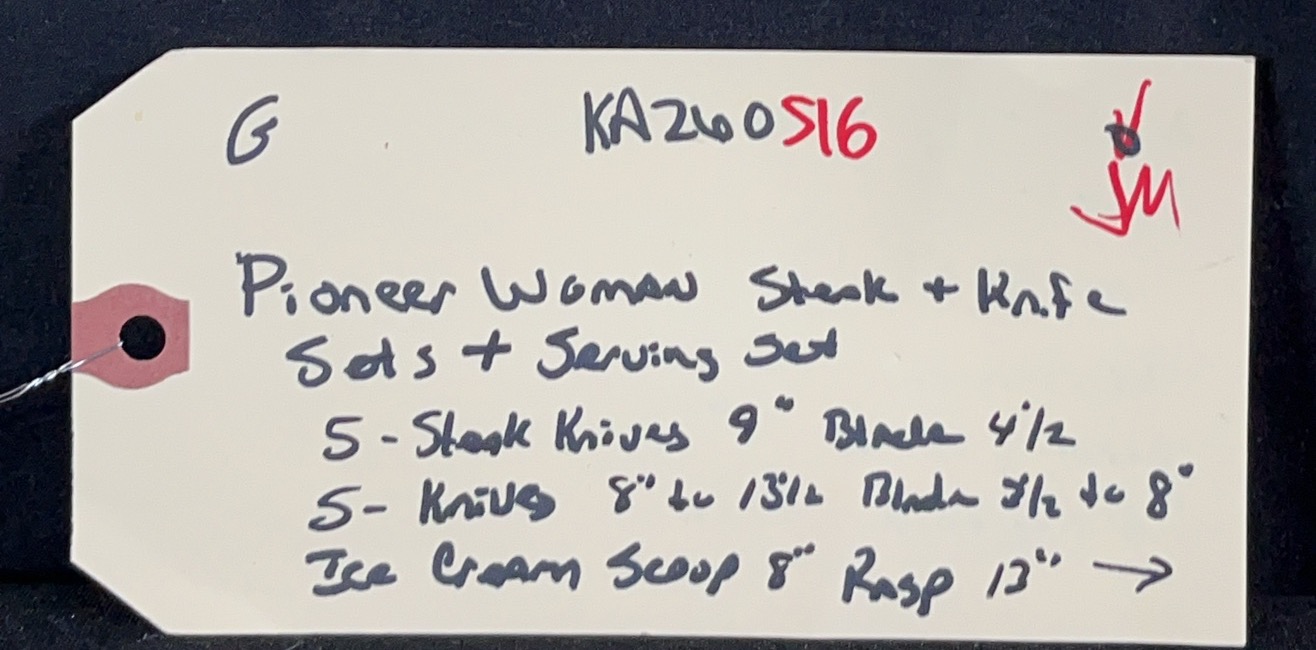 G KA260516 JM
Pioneer Woman Steak + Knife
Sets + Serving Set
5 - Steak Knives 9" Blade 4 1/2
5 - Knives 8" to 13 1/2 Blade 3 1/2 to 8"
Ice Cream Scoop 8" Rasp 13" →